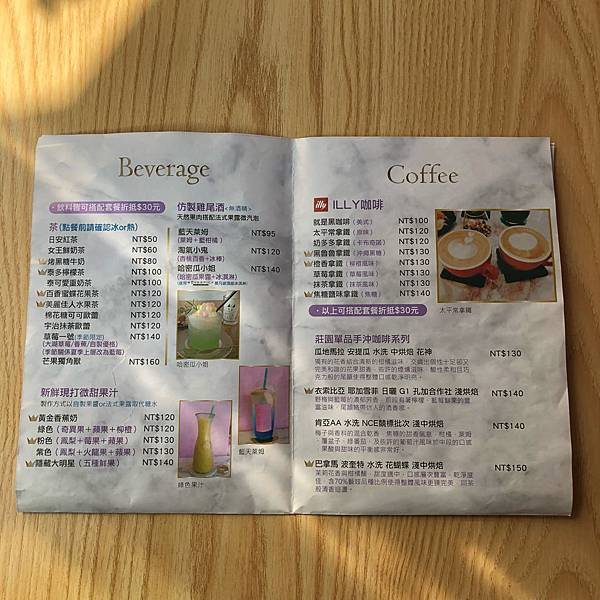 Beverage
・飲料皆可搭配套餐折抵$30元
茶(點餐前請確認冰or熱)
日安紅茶 NT$50
女王鮮奶茶 NT$60
烤黑糖牛奶 NT$80
泰多檸檬茶 NT$100
泰可愛重奶茶 NT$100
百香蜜蜂花果茶 NT$110
美麗佳人水果茶 NT$120
棉花糖可可歐蕾 NT$120
宇治抹茶歐蕾 NT$120
草莓一號(季節限定) NT$140
(大湖草莓/香蕉/自製優格)
(季節關係夏季上頭改為藍莓)
芒果獨角獸 NT$160
新鮮現打微甜果汁
製作方式以自製果醬or法式果露取代糖水
黃金香蕉奶 NT$110
綠色(奇異果+蘋果+柳橙) NT$120
粉色(鳳梨+莓果+蘋果) NT$130
紫色(鳳梨+火龍果+蘋果) NT$130
隱藏大明星(五種鮮果) NT$140
仿製雞尾酒<無酒精>
天然果肉搭配法式果露微汽泡
藍天萊姆 NT$95
(萊姆+藍柑橘)
淘氣小鬼 NT$120
(杏桃百香+冰棒)
哈密瓜小姐 NT$140
(哈密瓜果露+冰淇淋)
哈密瓜小姐
藍天萊姆
綠色果汁
Coffee
illy ILLY咖啡
就是黑咖啡(美式) NT$100
太平常拿鐵(原味) NT$120
奶多多拿鐵(卡布奇諾) NT$120
黑魯魯拿鐵(沖繩黑糖) NT$130
橙香拿鐵(柳橙風味) NT$130
草莓拿鐵(草莓風味) NT$130
抹茶拿鐵(抹茶風味) NT$130
焦糖鹽味拿鐵(焦糖) NT$140
・以上可搭配套餐折抵$30元
太平常拿鐵
莊園單品手沖咖啡系列
瓜地馬拉 安提瓜 水洗 中烘焙 花神 NT$130
衣索比亞 耶加雪菲 日曬 G1 孔加合作社 淺烘焙 NT$140
肯亞AA 水洗 NCE競標批次 淺中烘焙 NT$140
巴拿馬 波奎特 水洗 花蝴蝶 淺中烘焙 NT$150